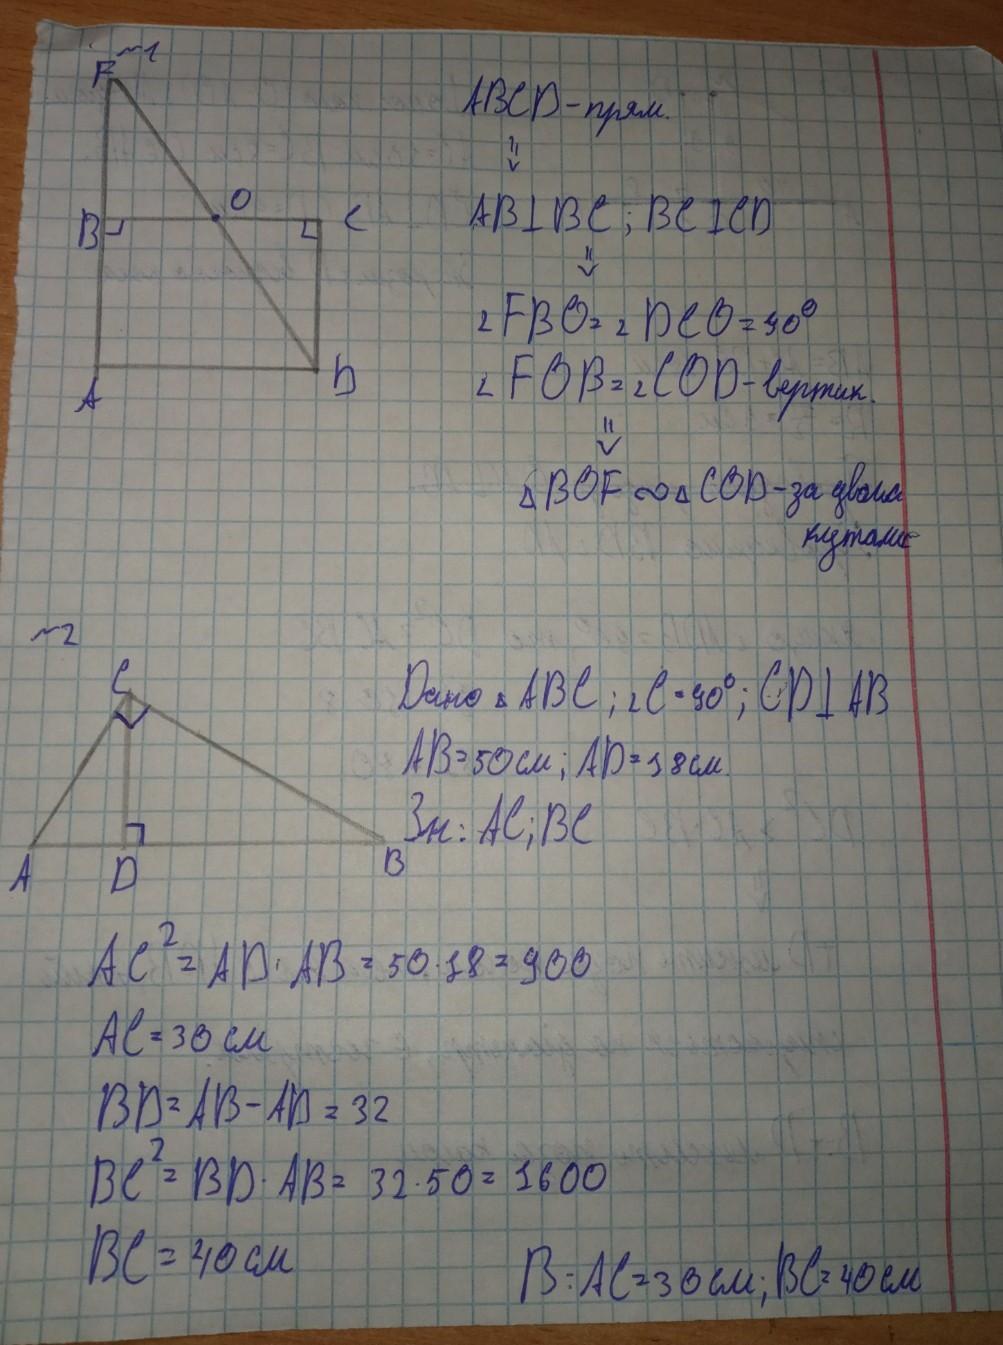 ~1
F
ABCD-прям.
⇓
O
B
C
AB⊥BC; BC⊥CD
⇓
∠FBO=∠DCO=90°
A
D
∠FOB=∠COD-вертик.
⇓
△BOF∾△COD-за двома
кутами
~2
C
Дано △ABC; ∠C=90°; CD⊥AB
AB=50см; AD=18см.
Зн: AC; BC
A
D
B
AC²=AD·AB=50·18=900
AC=30см
BD=AB-AD=32
BC²=BD·AB=32·50=1600
BC=40см
В: AC=30см; BC=40см